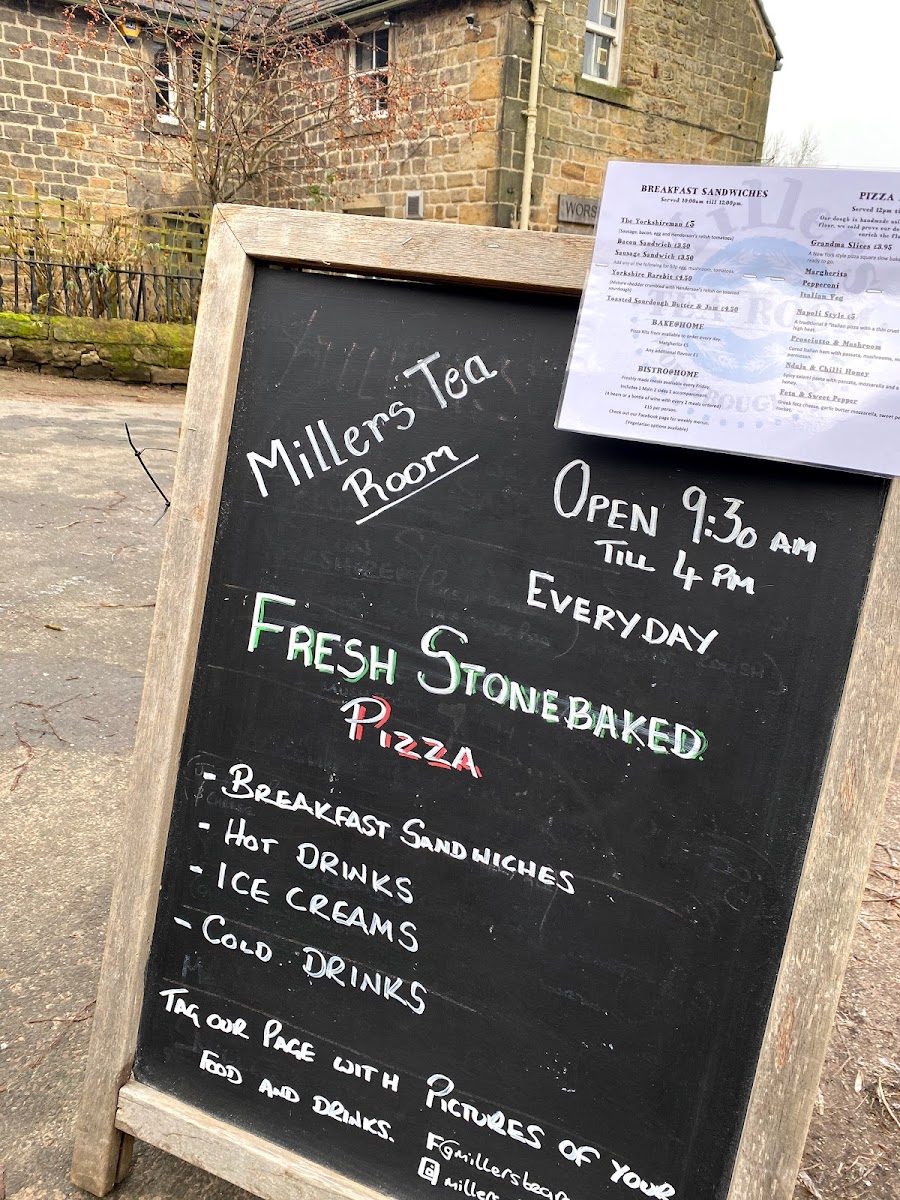 WORS
BREAKFAST SANDWICHES
Served 10:00am till 12:00pm.
The Yorkshireman £5
(Sausage, bacon, egg and Henderson's relish tomatoes)
Bacon Sandwich £3.50
Sausage Sandwich £3.50
Add any of the following for 50p egg, mushroom, tomatoes.
Yorkshire Rarebit £4.50
(Mature cheddar crumbled with Henderson's Relish on toasted
sourdough)
Toasted Sourdough Butter & Jam £4.50
BAKE@HOME
Pizza kits from available to order every day.
Margherita £5
Any additional flavour £1
BISTRO@HOME
Freshly made meals available every Friday
Includes 2 Main 2 sides 1 accompaniment
(4 beers or a bottle of wine with every 2 meals ordered)
£15 per person.
Check out our Facebook page for weekly menus.
(Vegetarian options available)
PIZZA
Served 12pm
Our dough is handmade
flour, we cold prove our
enrich the
Grandma Slices £3.95
A New York style pizza square slow
ready to go.
Margherita
Pepperoni
Italian Veg
Napoli Style £5
A traditional 8 "Italian pizza with a thin crust
high heat.
Prosciutto & Mushroom
Cured Italian ham with passata, mushrooms,
parmesan.
Nduja & Chilli Honey
Spicy salami paste with passata, mozzarella and
honey.
Feta & Sweet Pepper
Greek feta cheese, garlic butter mozzarella, sweet
rocket.
Millers Tea
Room
OPEN 9:30 AM
TILL 4 PM
EVERYDAY
FRESH STONEBAKED
PIZZA
- BREAKFAST SANDWICHES
- HOT DRINKS
- ICE CREAMS
- COLD DRINKS
TAG OUR PAGE WITH PICTURES OF YOUR
FOOD AND DRINKS.
F@millerstear
millers